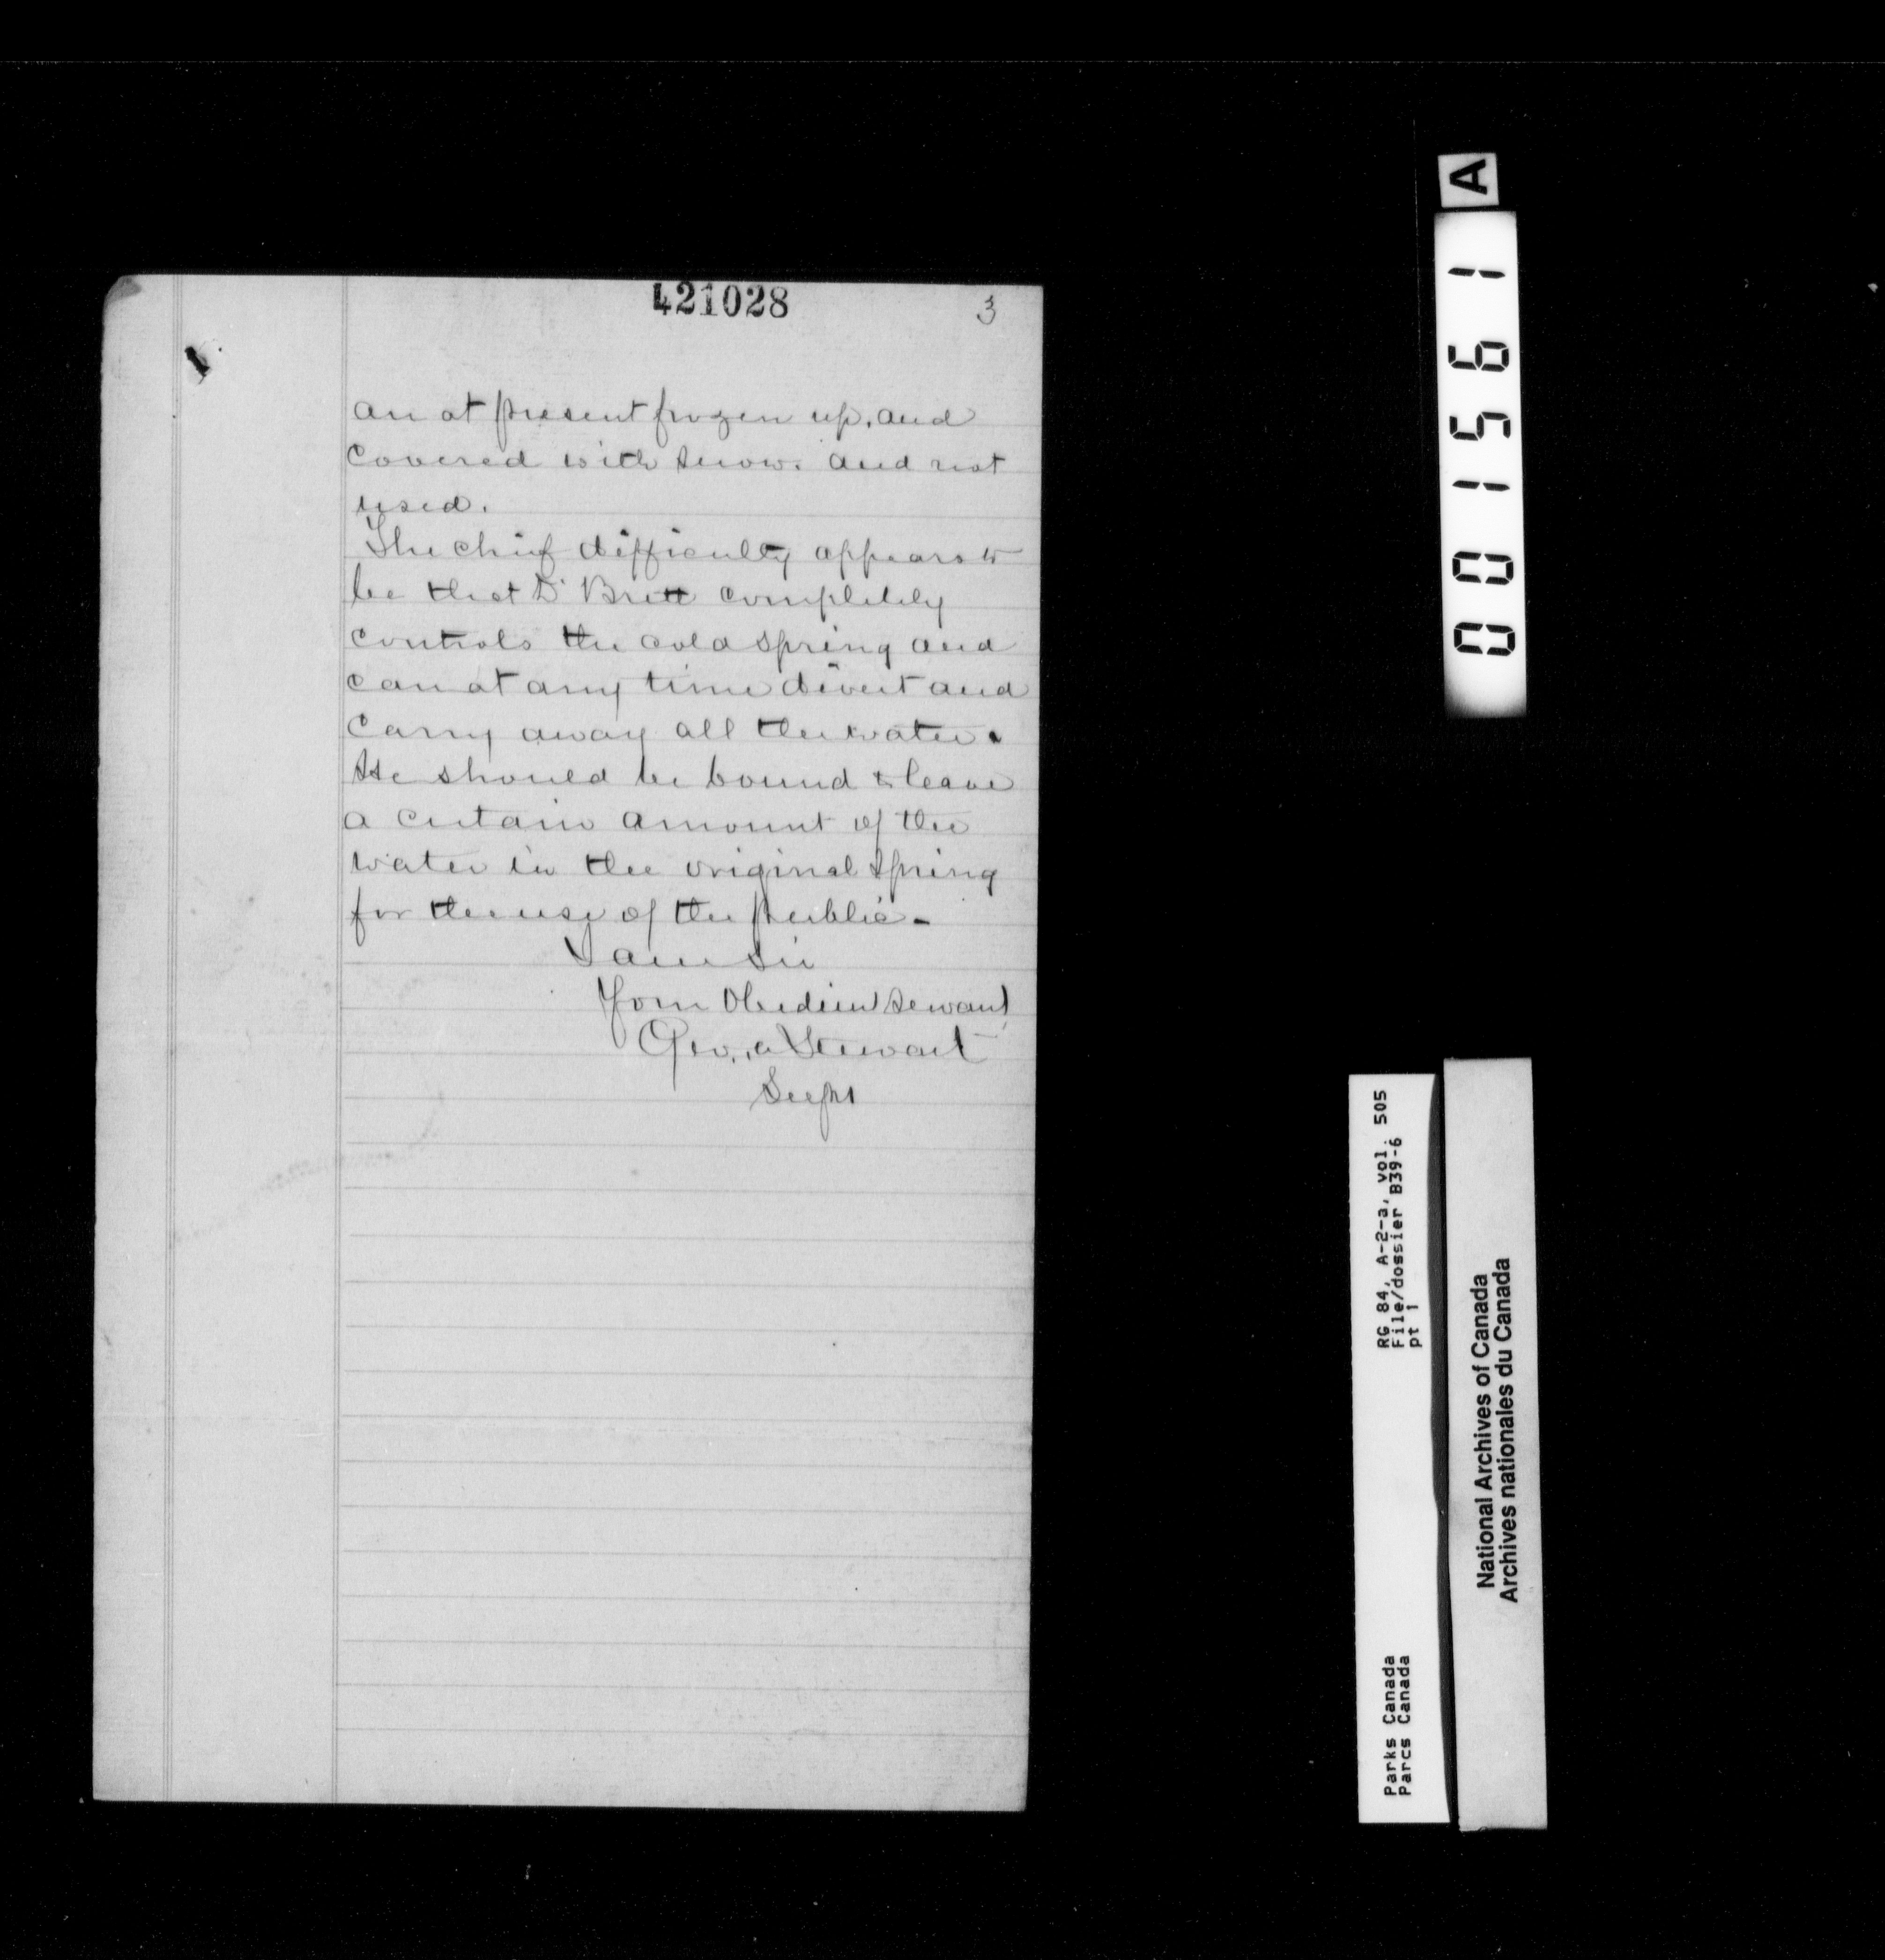 421028
3
are at present frozen up, and
covered with snow. and not
used.
The chief difficulty appears to
be that Dr Brett completely
controls the cold spring and
can at any time divert and
carry away all the water.
He should be bound to leave
a certain amount of the
water in the original spring
for the use of the public-
I am Sir
Your Obedient Servant
Geo. A Stewart
Supt
A
001561
RG 84, A-2-a, vol. 505
File/dossier B39-6
pt 1
Parks Canada
Parcs Canada
National Archives of Canada
Archives nationales du Canada